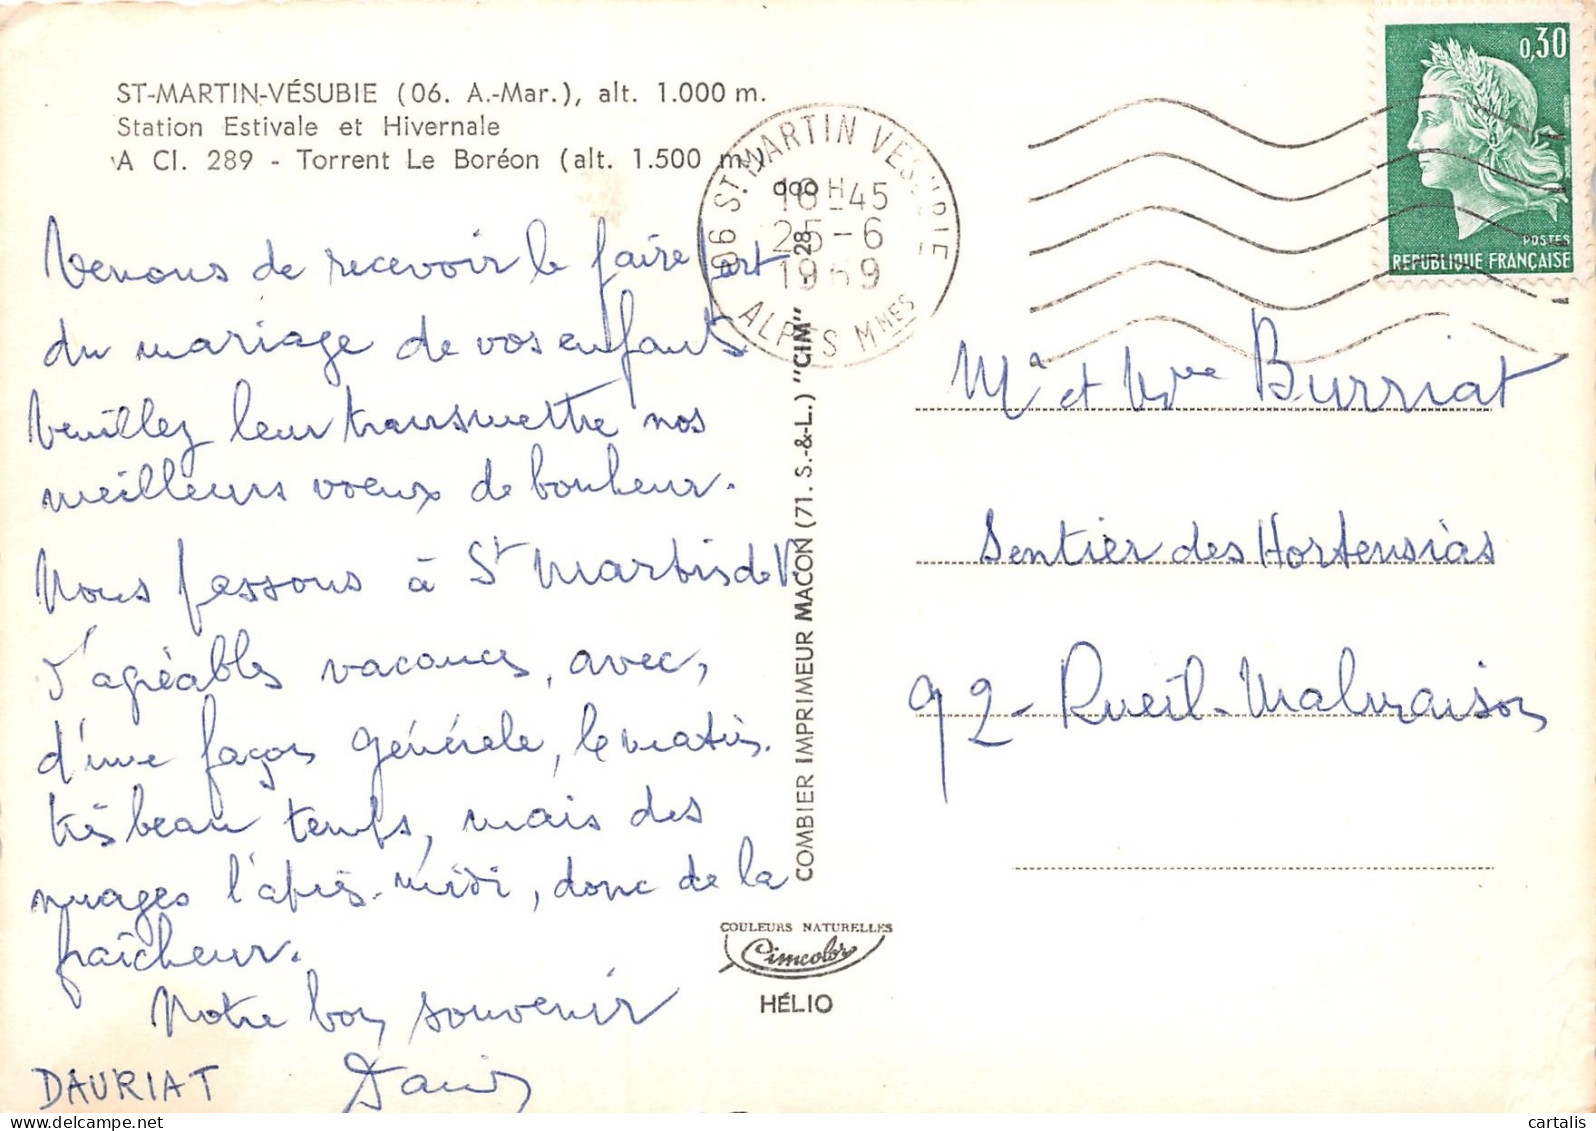 ST-MARTIN-VÉSUBIE (06. A.-Mar.), alt. 1.000 m.
Station Estivale et Hivernale
A Cl. 289 - Torrent Le Boréon (alt. 1.500 m.)
Venons de recevoir le faire part
du mariage de vos enfants
Veuillez leur transmettre nos
meilleurs voeux de bonheur.
Nous passons à St Martin de V.
d'agréables vacances, avec,
d'une façon générale, le matin
très beau temps, mais des
nuages l'après-midi, donc de la
fraîcheur.
Notre bon souvenir
DAURIAT
COMBIER IMPRIMEUR MACON (71. S.-&-L.) "CIM" - 28
COULEURS NATURELLES
Cimcolor
HÉLIO
06 ST MARTIN VESUBIE
18H45
25-6
1969
ALPES MMES
0,30
POSTES
REPUBLIQUE FRANÇAISE
Mr et Mme Burriat
Sentier des Hortensias
92 - Rueil-Malmaison
cartalis